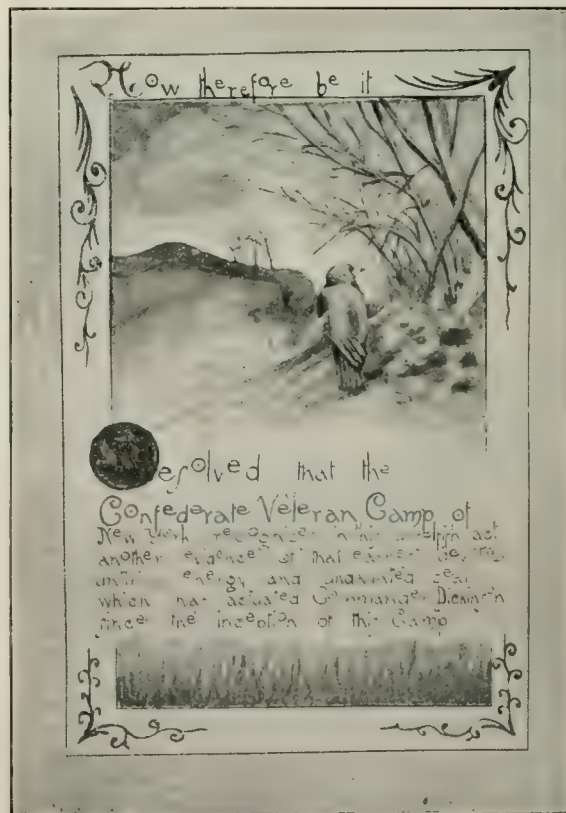 Now therefore be it
Resolved that the
Confederate Veteran Camp of
New York recognizes in this act
another evidence of that earnest
energy and undaunted zeal
which has actuated Commander Dickinson
since the inception of this Camp